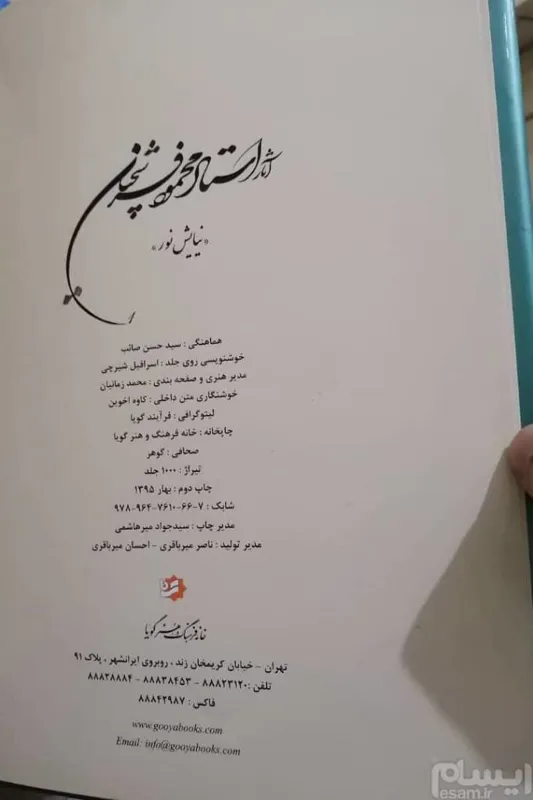 آثار استاد محمود فرشچیان
«نیایش نور»
هماهنگی : سید حسن صائب
خوشنویسی روی جلد : اسرافیل شیرچی
مدیر هنری و صفحه بندی : محمد زمانیان
خوشنگاری متن داخلی : کاوه اخوین
لیتوگرافی : فرآیند گویا
چاپخانه : خانه فرهنگ و هنر گویا
صحافی : گوهر
تیراژ : ۱۰۰۰ جلد
چاپ دوم : بهار ۱۳۹۵
شابک : ۷-۶۶-۷۶۱۰-۹۶۴-۹۷۸
مدیر چاپ : سیدجواد میرهاشمی
مدیر تولید : ناصر میرباقری - احسان میرباقری
خانه فرهنگ و هنر گویا
تهران - خیابان کریمخان زند، روبروی ایرانشهر، پلاک ۹۱
تلفن : ۸۸۸۲۳۱۲۰ - ۸۸۸۳۸۴۵۳ - ۸۸۸۲۸۸۸۴
فاکس : ۸۸۸۴۲۹۸۷
www.gooyabooks.com
Email: info@gooyabooks.com
ایسام
esam.ir